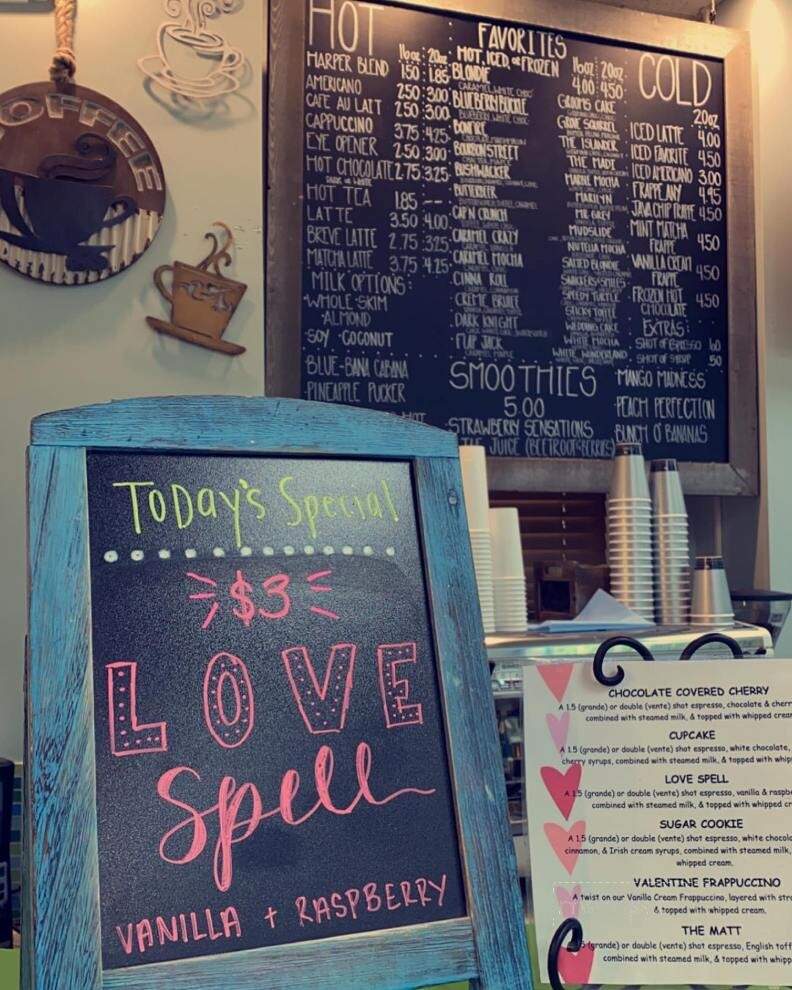 COFFEE
HOT
16oz 20oz
HARPER BLEND 1.50 1.85
AMERICANO 2.50 3.00
CAFE AU LAIT 2.50 3.00
CAPPUCCINO 3.75 4.25
EYE OPENER 2.50 3.00
HOT CHOCOLATE 2.75 3.25
HOT TEA 1.85 --
LATTE 3.50 4.00
BREVE LATTE 2.75 3.25
MATCHA LATTE 3.75 4.25
MILK OPTIONS:
·WHOLE·SKIM
·ALMOND
·SOY ·COCONUT
FAVORITES
HOT, ICED, or FROZEN
16oz 20oz
4.00 4.50
BLONDIE
CARAMEL, WHITE CHOC
BLUEBERRY BUCKLE
BONFIRE
BOURBON STREET
BUSHWACKER
BUTTERBEER
CAP'N CRUNCH
CARAMEL CRAZY
CARAMEL MOCHA
CINNA ROLL
CREME BRULEE
DARK KNIGHT
FLAP JACK
GROOMS CAKE
THE ISLANDER
THE MADE
MARBLE MOCHA
MARILYN
MR GREY
MUDSLIDE
NUTELLA MOCHA
SALTED BLONDIE
SPEEDY TURTLE
STICKY TOFFEE
WEDDING CAKE
WHITE MOCHA
WHITE WONDERLAND
COLD
20oz
ICED LATTE 4.00
ICED FAVORITE 4.50
ICED AMERICANO 3.00
FRAPPE ANY 4.95
JAVA CHIP FRAPPE 4.50
MINT MATCHA
FRAPPE 4.50
VANILLA CREAM
FRAPPE 4.50
FROZEN HOT
CHOCOLATE 4.50
EXTRAS:
SHOT OF ESPRESSO .60
SHOT OF SYRUP .50
SMOOTHIES
5.00
·BLUE-BANA CABANA
·PINEAPPLE PUCKER
·STRAWBERRY SENSATIONS
JUICE (BEETROOT & BERRIES)
·MANGO MADNESS
·PEACH PERFECTION
BUNCH O' BANANAS
Today's Special
$3
LOVE
Spell
VANILLA + RASPBERRY
CHOCOLATE COVERED CHERRY
A 1.5 (grande) or double (vente) shot espresso, chocolate & cherr
combined with steamed milk, & topped with whipped crea
CUPCAKE
A 1.5 (grande) or double (vente) shot espresso, white chocolate,
cherry syrups, combined with steamed milk, & topped with whip
LOVE SPELL
A 1.5 (grande) or double (vente) shot espresso, vanilla & raspbe
combined with steamed milk, & topped with whipped cr
SUGAR COOKIE
A 1.5 (grande) or double (vente) shot espresso, white chocola
cinnamon, & Irish cream syrups, combined with steamed milk,
whipped cream.
VALENTINE FRAPPUCCINO
A twist on our Vanilla Cream Frappuccino, layered with str
& topped with whipped cream.
THE MATT
(grande) or double (vente) shot espresso, English toff
combined with steamed milk, & topped with whipp